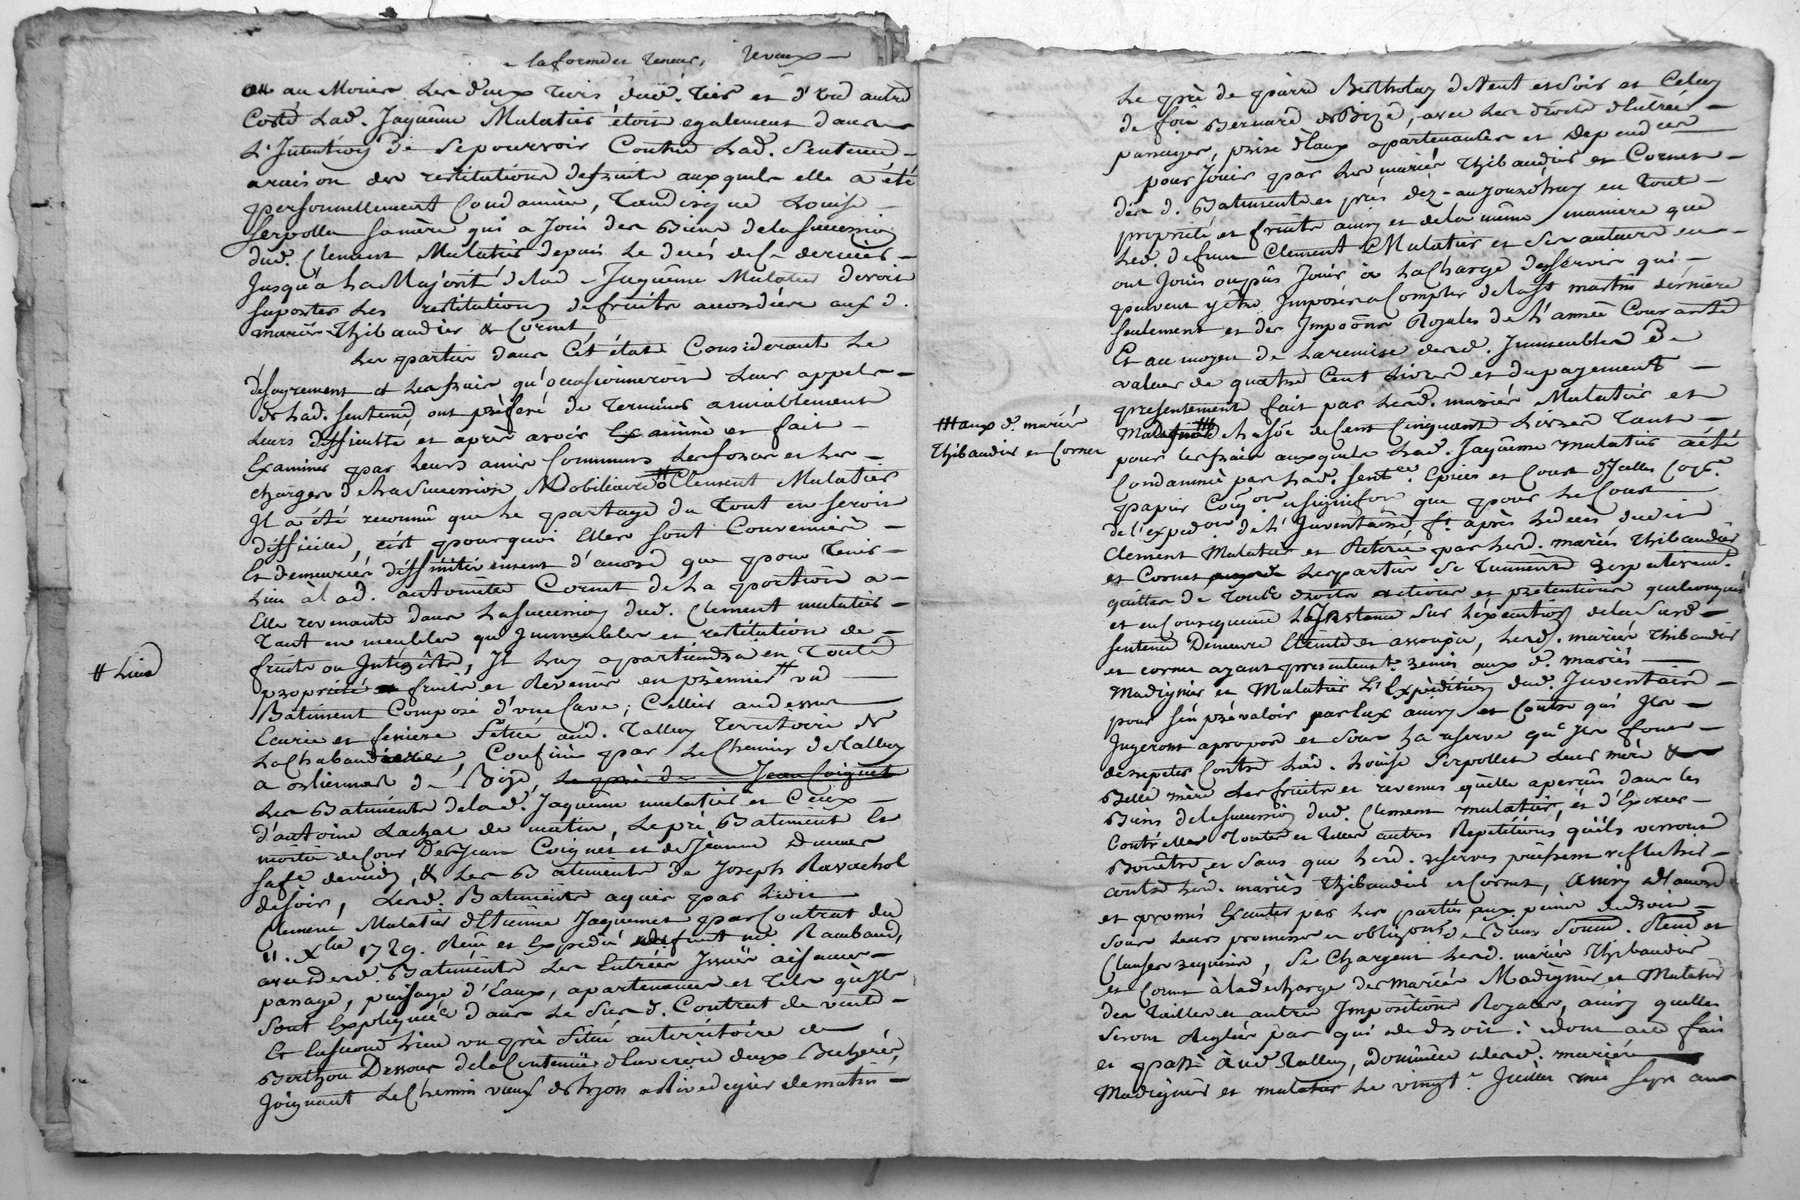 la forme et teneur,
ou au Moins les deux tiers dud. tier et d'un autre
Costé Lad. Jaquême Malatier étoit egalement dans
L'Intention de se pourvoir Contre Lad. Sentence
a raison des restitutions de fruits auxquels elle a été
personnellement Condamnée, Tandisque Louise
Serpollet sa mère qui a Joui des Biens de la succession
dud. Clement Malatier depuis Le decés de Ce dernier
Jusqu'a La Majorité de Lad. Jaquême Malatier devoit
suporter Les restitutions de fruits accordées aux d.
mariés Thibaudier & Cornet
Les parties dans Cet état Considerant Le
désagrement et Les frais qu'occasionneroit Leur appel
de Lad. sentence, ont préferé de Terminer amiablement
Leurs difficultés et après avoir Examiné et fait
Examiner par Leurs amis Communs Les forces et Les
charges de La succession Mobiliaire Clement Malatier
Il a été reconnû que Le partage du Tout en seroit
difficile, c'est pourquoi Elles sont Convenues
Et demeurées diffinitivement d'accord que pour Tenir
Lieu à Lad. antoinette Cornet de La portion a
Elle revenante dans La succession dud. Clement malatier
Tant en meubles qu'Immeubles et restitution de
fruits ou Intérêts, Il Luy apartiendra en Toute
propriété fruits et Revenus en premier # un
# Lieu
Batiment Composé d'une Cave, Cellier au dessus
Ecurie et feniere Situé aud. Tallury Territoire de
La Chabaudiere, Confiné par Le Chemin de Tallury
a orliennas de Bize, Le pré de Jean Coignet
Les Batiments de Lad. Jaquême malatier et Ceux
d'antoine Lachat de matin, Le pré, Batiment Et
moitié de Cour De Jean Coignet et de Jeanne
de midy, & Les Batiments de Joseph Ravachol
de soir, Lesd. Batiments aquis par Ledit
Clement Malatier d'Etienne Jaquemet par Contrat du
11. Xbre 1729. Reçu et Expedié Me Rambaud,
avec Lesd. Batiments Les Entrées Issues aisances
passage, puisage d'Eaux, apartenances et Tels qu'Ils
sont Expliqués dans Le susd. Contrat de vente
Et En second Lieu un pré Situé au territoire de
Berthou Dessous de La Contenue d'Environ deux Bicherées,
Joignant Le Chemin vieux de Lyon a de matin
Le pré de pierre Bertholay de Vent et Soir et Celuy
de Bernard de Bize, avec Les Droits d'Entrée
passages, prise d'Eaux apartenances et Dependces
pour Jouir par Les mariés Thibaudier et Cornet
des d. Batiments et prés dez-aujourd'huy en Toute
proprieté et fruits ainsy et de la même maniere que
Led. defunt Clement Malatier et Ses auteurs en
ont Joui ou pûs Jouir à La Charge des servis qui
peuvent y être Imposés a Compter de la St martin derniere
seulement et des Imposõns Royales de L'année Courante
Et au moyen de La remise desd. Immeubles De
valeur de quatre Cent Livres et du payement
presentement fait par Lesd. mariés Malatier et
### aux d. mariés
Thibaudier et Cornet
### de La sôe de Cent Cinquante Livres Tant
pour Les frais auxquels Lad. Jaquême malatier a été
Condamnée par Lad. Sentce. Epices et
papier que pour Le Cout
de L'expedon de L'Inventaire ft après Le deces dudit
Clement Malatier et Retiré par Lesd. mariés Thibaudier
et Cornet Les parties Se Tiennent respectivemt.
quittes de Tous droits actions et prétentions quelconques
et en Consequence L'Instance Sur L'execution de la Susd.
sentence Demeure Eteinte et assoupie, Lesd. mariés Thibaudier
et cornet ayant presentemt. remis aux d. mariés
Madignier et Malatier L'Expédition dud. Inventaire
pour s'en prévaloir par Eux ainsy et Contre qui Ils
Jugeront apropos et sous La reserve que Ils font
de repeter Contre Lad. Louise Serpollet Leur mère &
Belle mère Les fruits et revenus qu'elle a perçûs dans les
Biens de la succession dud. Clement malatier, et d'Exercer
Contre Elle Toutes et Telles autres Repetitions qu'ils verront
Bon être, et sans que Lesd. reserves puissent reflechir
contre Lesd. mariés Thibaudier et Cornet, Ainsy d'accord
et promis Executer par Les parties aux peines de droit
sous Leurs promesses obligons de Biens Soumns. Renõns et
Clauses requises, Se Chargent Lesd. mariés Thibaudier
et Cornet à la decharge des mariés Madignier et Malatier
des Tailles et autres Impositions Royales, ainsy qu'elles
seront Reglées par qui de droit: dont acte fait
et passé aud Tallury, domicile desd. mariés
Madignier et malatier Le vingte. Juillet mil sept cent